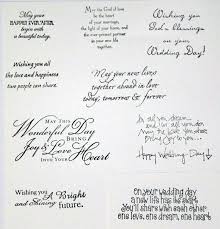 May your
HAPPILY EVER AFTER
begin with
a beautiful today.
May the God of love
be the heart
of your marriage,
the light of your home, and
the ever present partner
in your new life
together.
Wishing you
God's Blessings
on your
Wedding Day!
Wishing you all
the love and happiness
two people can share.
May your new lives
together abound in love
today, tomorrow & forever
MAY THIS
Wonderful Day
BRING
Joy & Love
INTO YOUR
Heart
As you do
and I do
May the love you share
bring Joy to you
Happy Wedding Day!
Wishing you
A Bright
and Shining
future.
on your wedding day
a new life has its start
you'll share with each other
one love, one dream, one heart